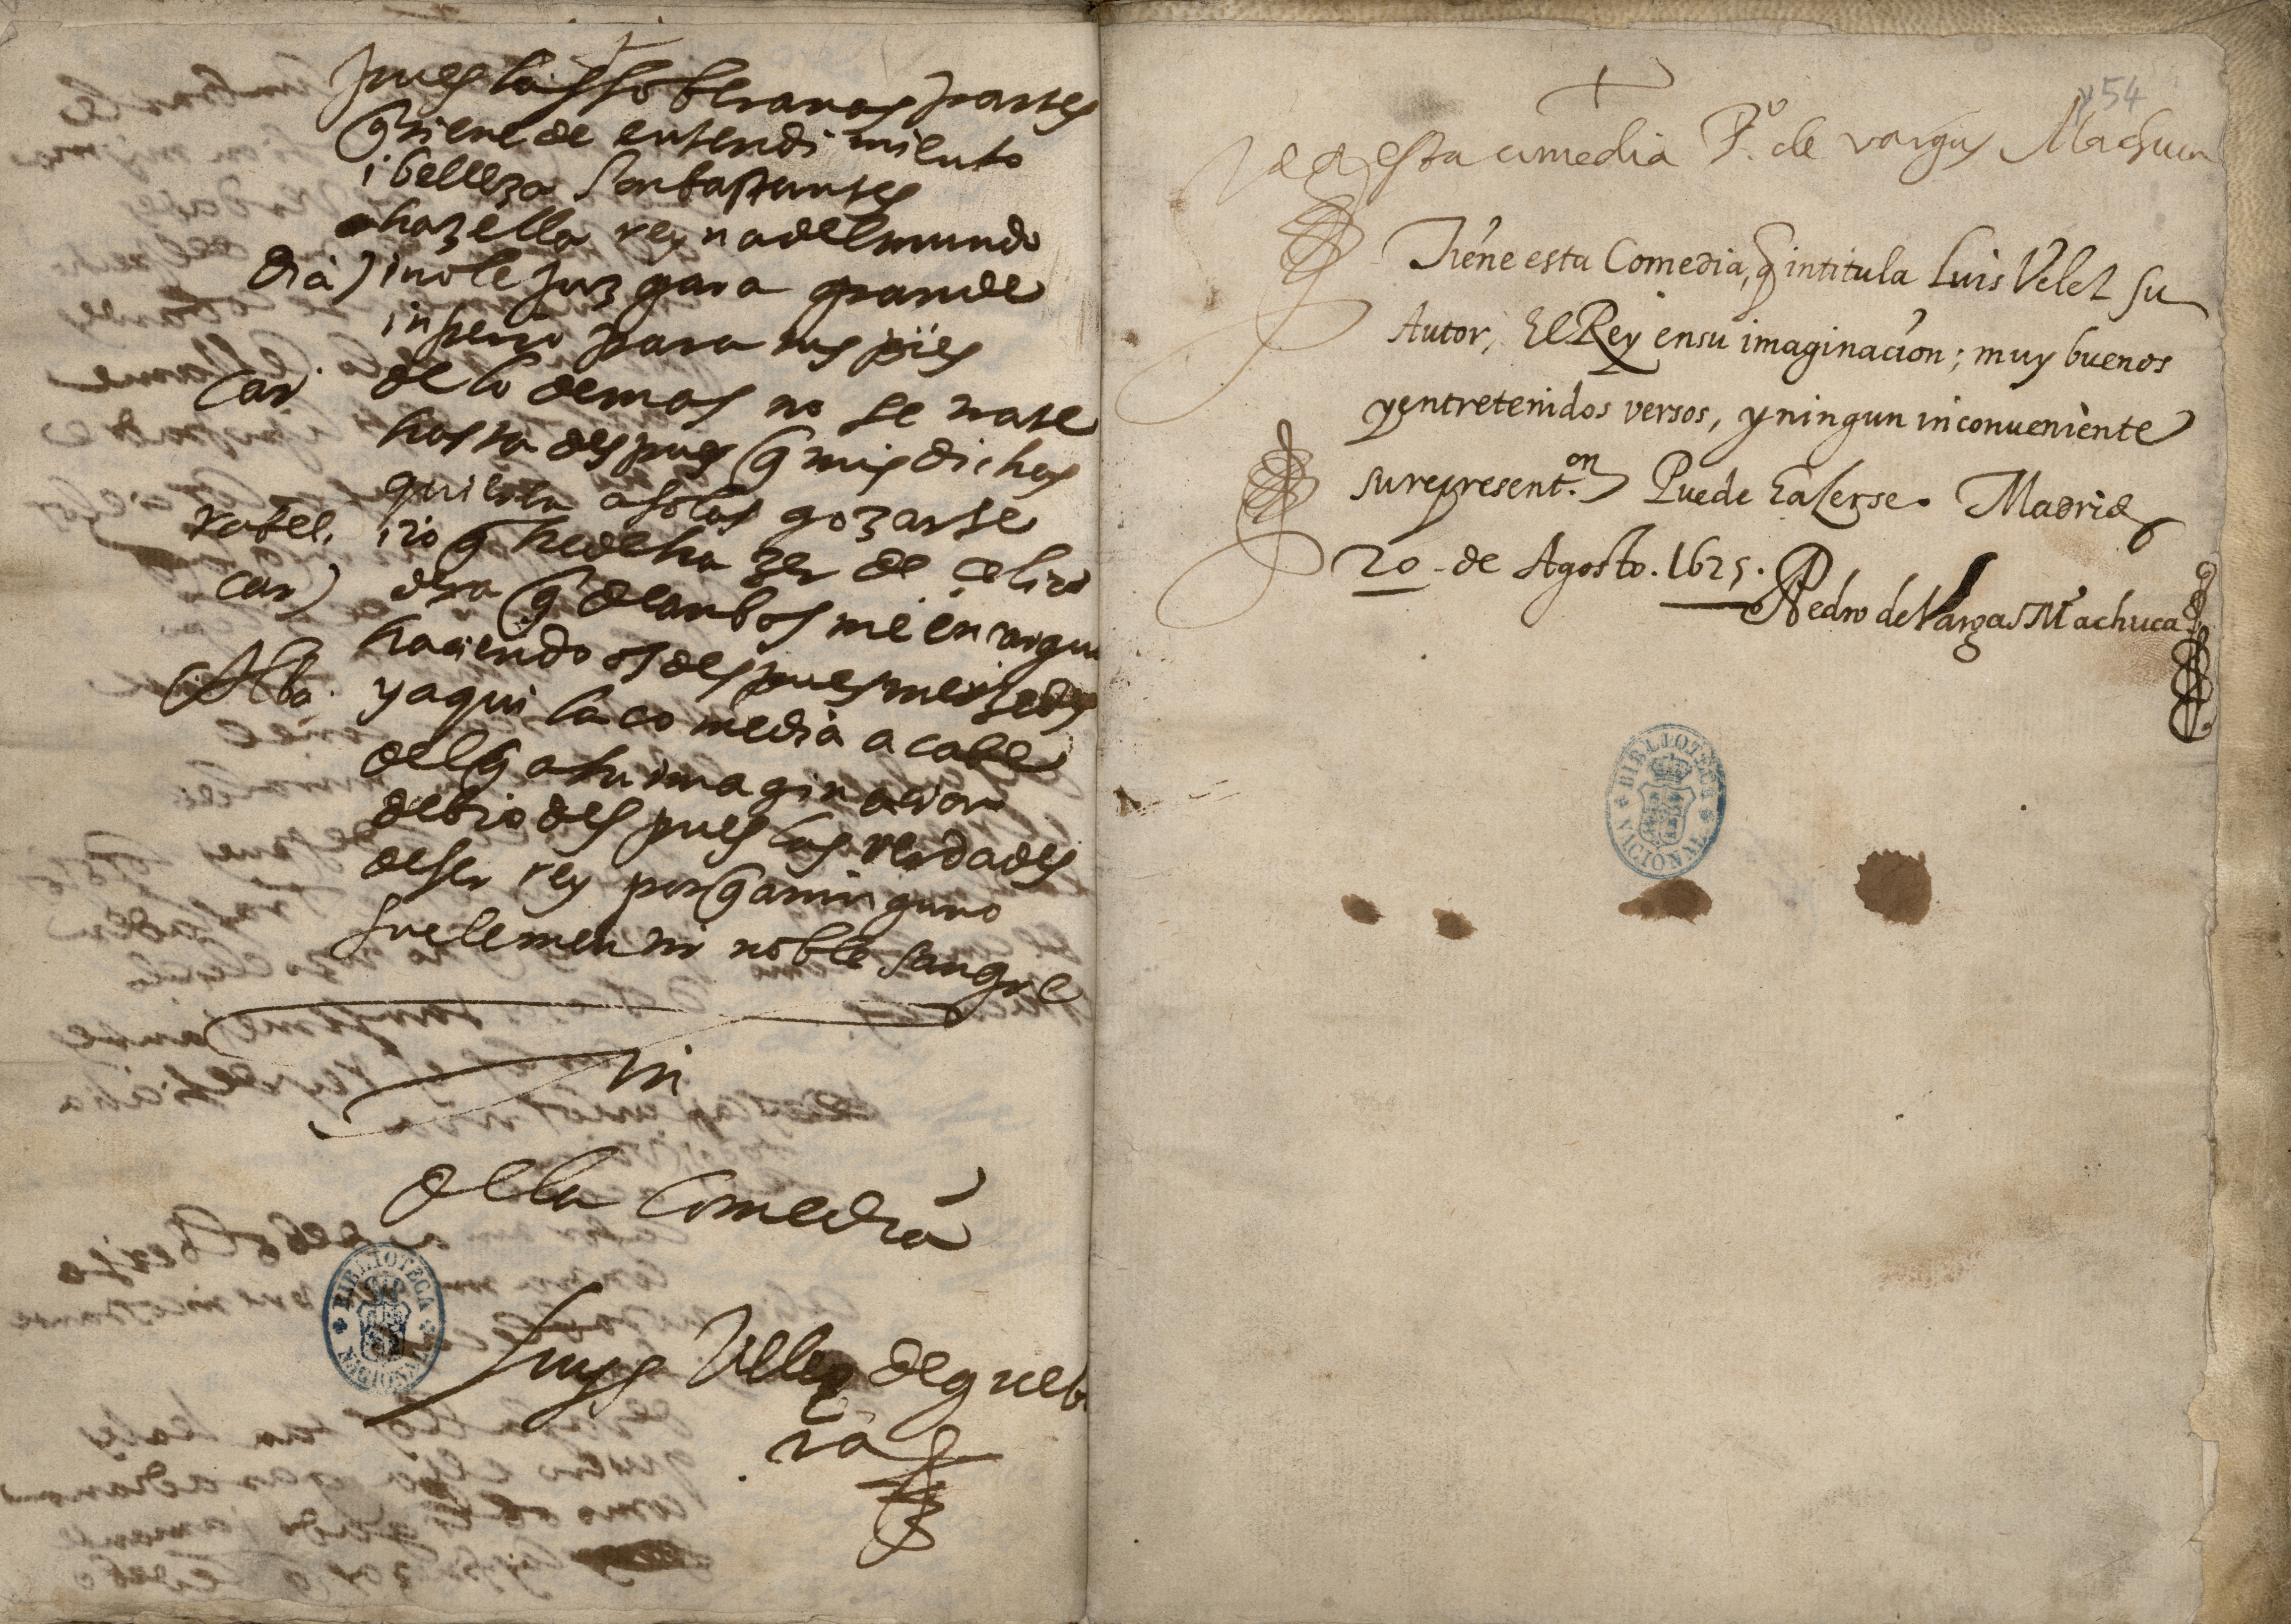 pues las soberanas partes
q̃ tiene de entendimiento
i belleza son bastantes
a hazella reyna del mundo
Dia) i no le juzgara grande
inperio para tus pies
Car de lo demas no se trate
hasta despues q̃ mis dichas
quieran a solas gozarse
rafel. i io q̃ he de hazer de celiro
Car) dexa q̃ de anbos me encargue
haciendo os despues mercedes
Alba. y aqui la comedia acabe
del q̃ a su imaginacion
debio despues las verdades
de ser rey porq̃ a ninguno
suele mentir noble sangre
Fin
de la comedia
Luys Velez de gueba
ra
54
Vea esta comedia P.º de vargas Machuca
Tiene esta Comedia, q̃ intitula Luis Velez su
Autor, El Rey en su imaginación; muy buenos
y entretenidos versos, y ningun inconueniente
su represent.on Puede hazerse. Madrid
20 de Agosto. 1625.
Pedro de Vargas Machuca
BIBLIOTECA NACIONAL
BIBLIOTECA NACIONAL